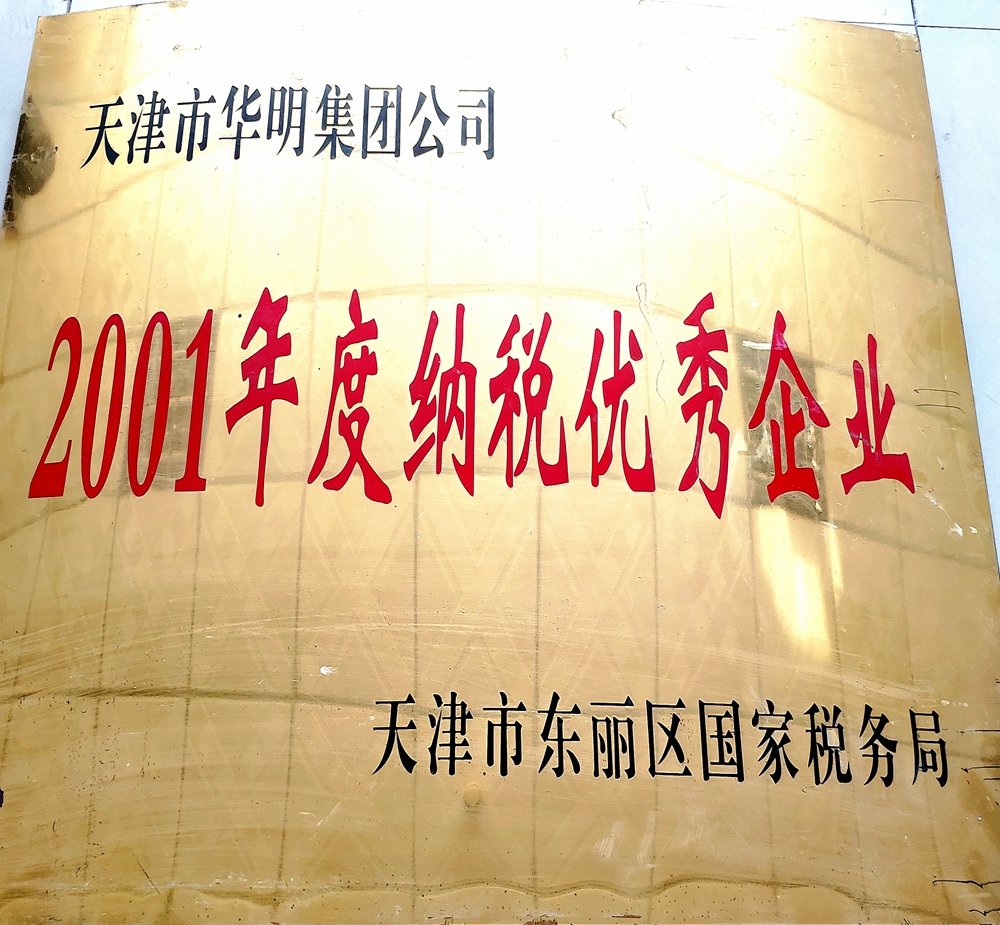 天津市华明集团公司
2001年度纳税优秀企业
天津市东丽区国家税务局